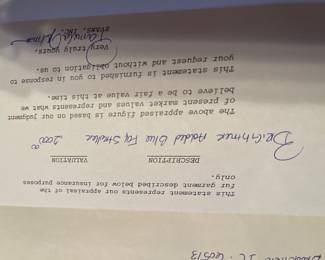 This statement represents our appraisal of the
fur garment described below for insurance purposes
only.
DESCRIPTION VALUATION
Blue Fox Stroller 2000.00
The above appraised figure is based on our judgment
of present market values and represents what we
believe to be a fair value at this time.
This statement is furnished to you in response to
your request and without obligation to us.
Very truly yours,
EVANS, INC.